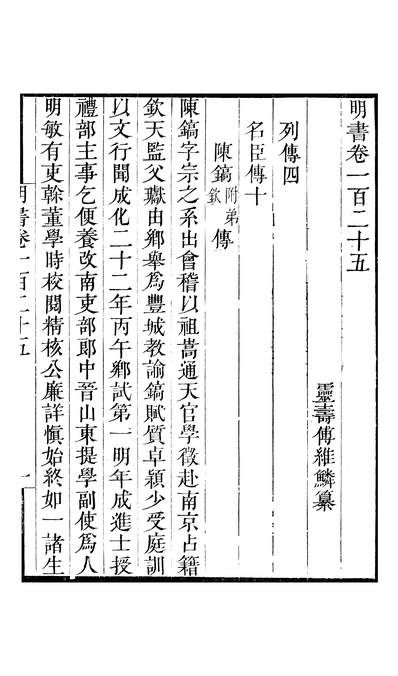 明書卷一百二十五
靈壽傅維鱗纂
列傳四
名臣傳十
陳鎬附弟欽傳
陳鎬字宗之系出會稽以祖嵩通天官學徵赴南京占籍
欽天監父瓛由鄉舉爲豐城教諭鎬賦質卓穎少受庭訓
以文行聞成化二十二年丙午鄉試第一明年成進士授
禮部主事乞便養改南吏部郎中晉山東提學副使爲人
明敏有吏榦董學時校閱精核公廉詳愼始終如一諸生
明書卷一百二十五
一